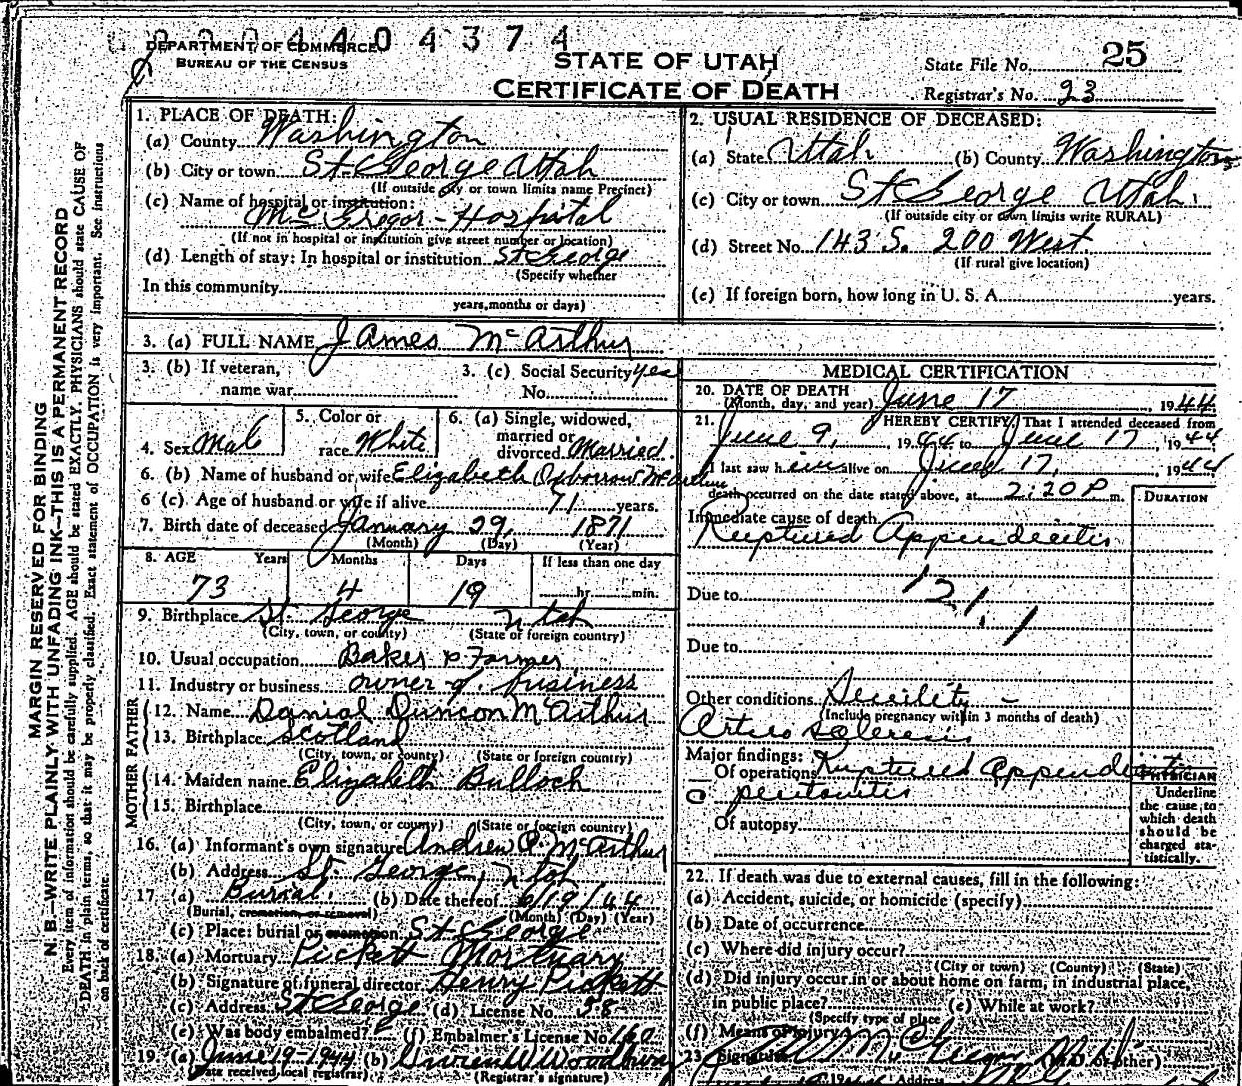 DEPARTMENT OF COMMERCE
BUREAU OF THE CENSUS
4 4 0 4 3 7 4
STATE OF UTAH
CERTIFICATE OF DEATH
State File No. 25
Registrar's No. 23
MARGIN RESERVED FOR BINDING
N. B.—WRITE PLAINLY WITH UNFADING INK—THIS IS A PERMANENT RECORD
Every item of information should be carefully supplied. AGE should be stated EXACTLY. PHYSICIANS should state CAUSE OF
DEATH in plain terms, so that it may be properly classified. Exact statement of OCCUPATION is very important. See instructions
on back of certificate.
1. PLACE OF DEATH:
(a) County Washington
(b) City or town St George Utah
(If outside city or town limits name Precinct)
(c) Name of hospital or institution:
McGregor-Hospital
(If not in hospital or institution give street number or location)
(d) Length of stay: In hospital or institution St George
(Specify whether
In this community
years, months or days)
2. USUAL RESIDENCE OF DECEASED:
(a) State Utah (b) County Washington
(c) City or town St George Utah
(If outside city or town limits write RURAL)
(d) Street No. 143 S. 200 West
(If rural give location)
(e) If foreign born, how long in U. S. A. years.
3. (a) FULL NAME James McArthur
3. (b) If veteran, name war
3. (c) Social Security No. yes
4. Sex Male
5. Color or race White
6. (a) Single, widowed, married or divorced Married
6. (b) Name of husband or wife Elizabeth Osborrow McArthur
6 (c) Age of husband or wife if alive 71 years.
7. Birth date of deceased January 29, 1871
(Month) (Day) (Year)
8. AGE Years Months Days If less than one day
73 4 19 hr. min.
9. Birthplace St. George Utah
(City, town, or county) (State or foreign country)
10. Usual occupation Baker & Farmer
11. Industry or business owner of business
FATHER
12. Name Danial Duncon McArthur
13. Birthplace Scotland
(City, town, or county) (State or foreign country)
MOTHER
14. Maiden name Elizabeth Bulloch
15. Birthplace
(City, town, or county) (State or foreign country)
16. (a) Informant's own signature Andrew P. McArthur
(b) Address St. George, Utah
17 (a) Burial (b) Date thereof 6/19/44
(Burial, cremation or removal) (Month) (Day) (Year)
(c) Place: burial or cremation St George
18. (a) Mortuary Pickett Mortuary
(b) Signature of funeral director Henry Pickett
(c) Address St George (d) License No. 58
(e) Was body embalmed? (f) Embalmer's License No. 160
19. (a) June 19-1944 (b)
(Date received local registrar) (Registrar's signature)
MEDICAL CERTIFICATION
20. DATE OF DEATH
(Month, day, and year) June 17, 1944
21. I HEREBY CERTIFY, That I attended deceased from
June 9, 1944 to June 17, 1944
I last saw him alive on June 17, 1944
death occurred on the date stated above, at 2:20 P m.
DURATION
Immediate cause of death
Ruptured Appendicitis
Due to 121.1
Due to
Other conditions Senility -
(Include pregnancy within 3 months of death)
Arterio sclerosis
Major findings:
Of operations Ruptured Appendicitis
peritonitis
Of autopsy
PHYSICIAN
Underline
the cause to
which death
should be
charged sta-
tistically.
22. If death was due to external causes, fill in the following:
(a) Accident, suicide, or homicide (specify)
(b) Date of occurrence
(c) Where did injury occur?
(City or town) (County) (State)
(d) Did injury occur in or about home on farm, in industrial place,
in public place? (e) While at work?
(Specify type of place
(f) Means of injury
23. Signature McGregor
Address